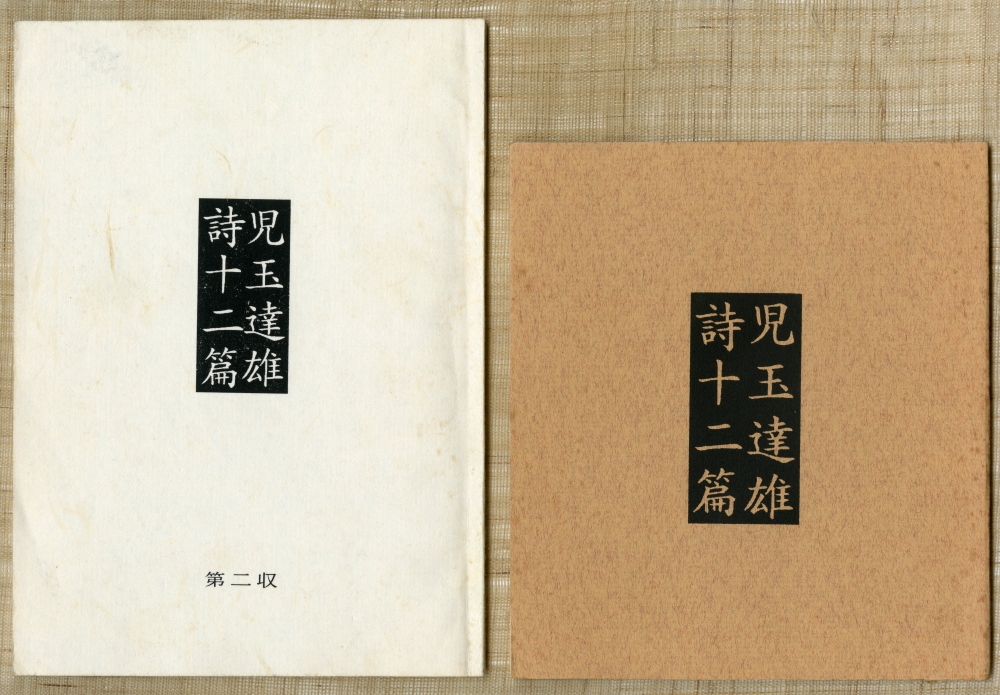 児玉達雄
詩十二篇
第二収
児玉達雄
詩十二篇